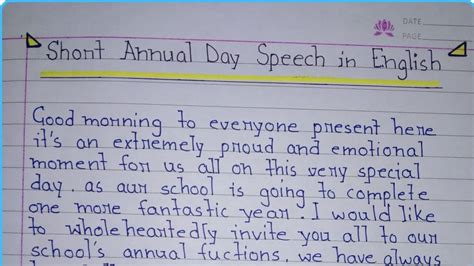 DATE
PAGE
Short Annual Day Speech in English
Good morning to everyone present here
it's an extremely proud and emotional
moment for us all on this very special
day. as our school is going to complete
one more fantastic year. I would like
to wholeheartedly invite you all to our
school's annual fuctions. we have always